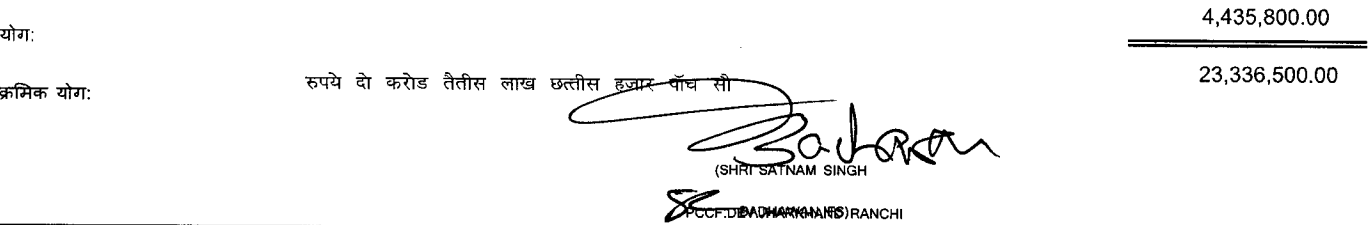 योग: 4,435,800.00
क्रमिक योग: रुपये दो करोड तैतीस लाख छत्तीस हज़ार पॉच सौ 23,336,500.00
(SHRI SATNAM SINGH
RANCHI